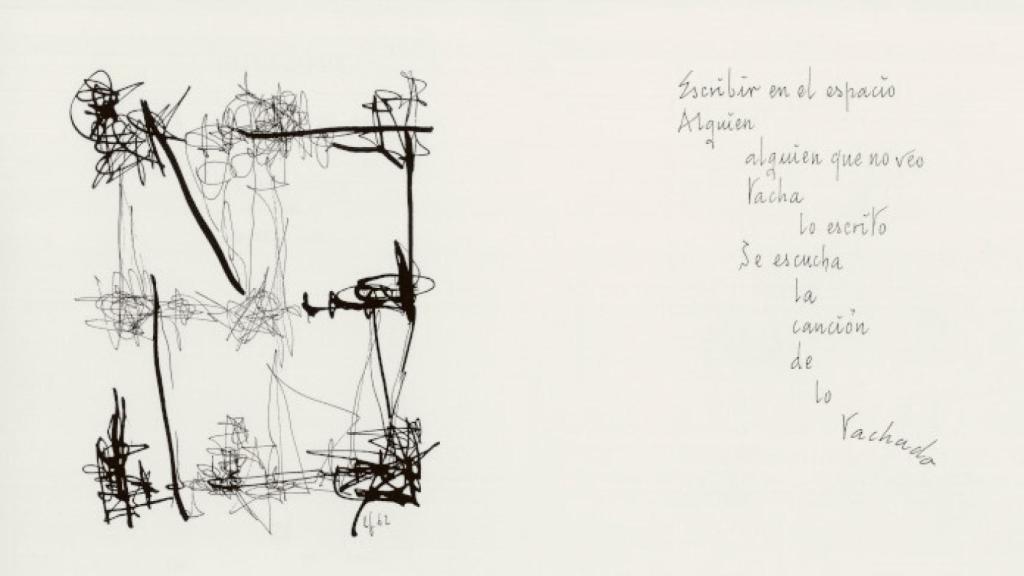 Escribir en el espacio
Alguien
alguien que no veo
tacha
lo escrito
Se escucha
la
canción
de
lo
tachado
lf 62